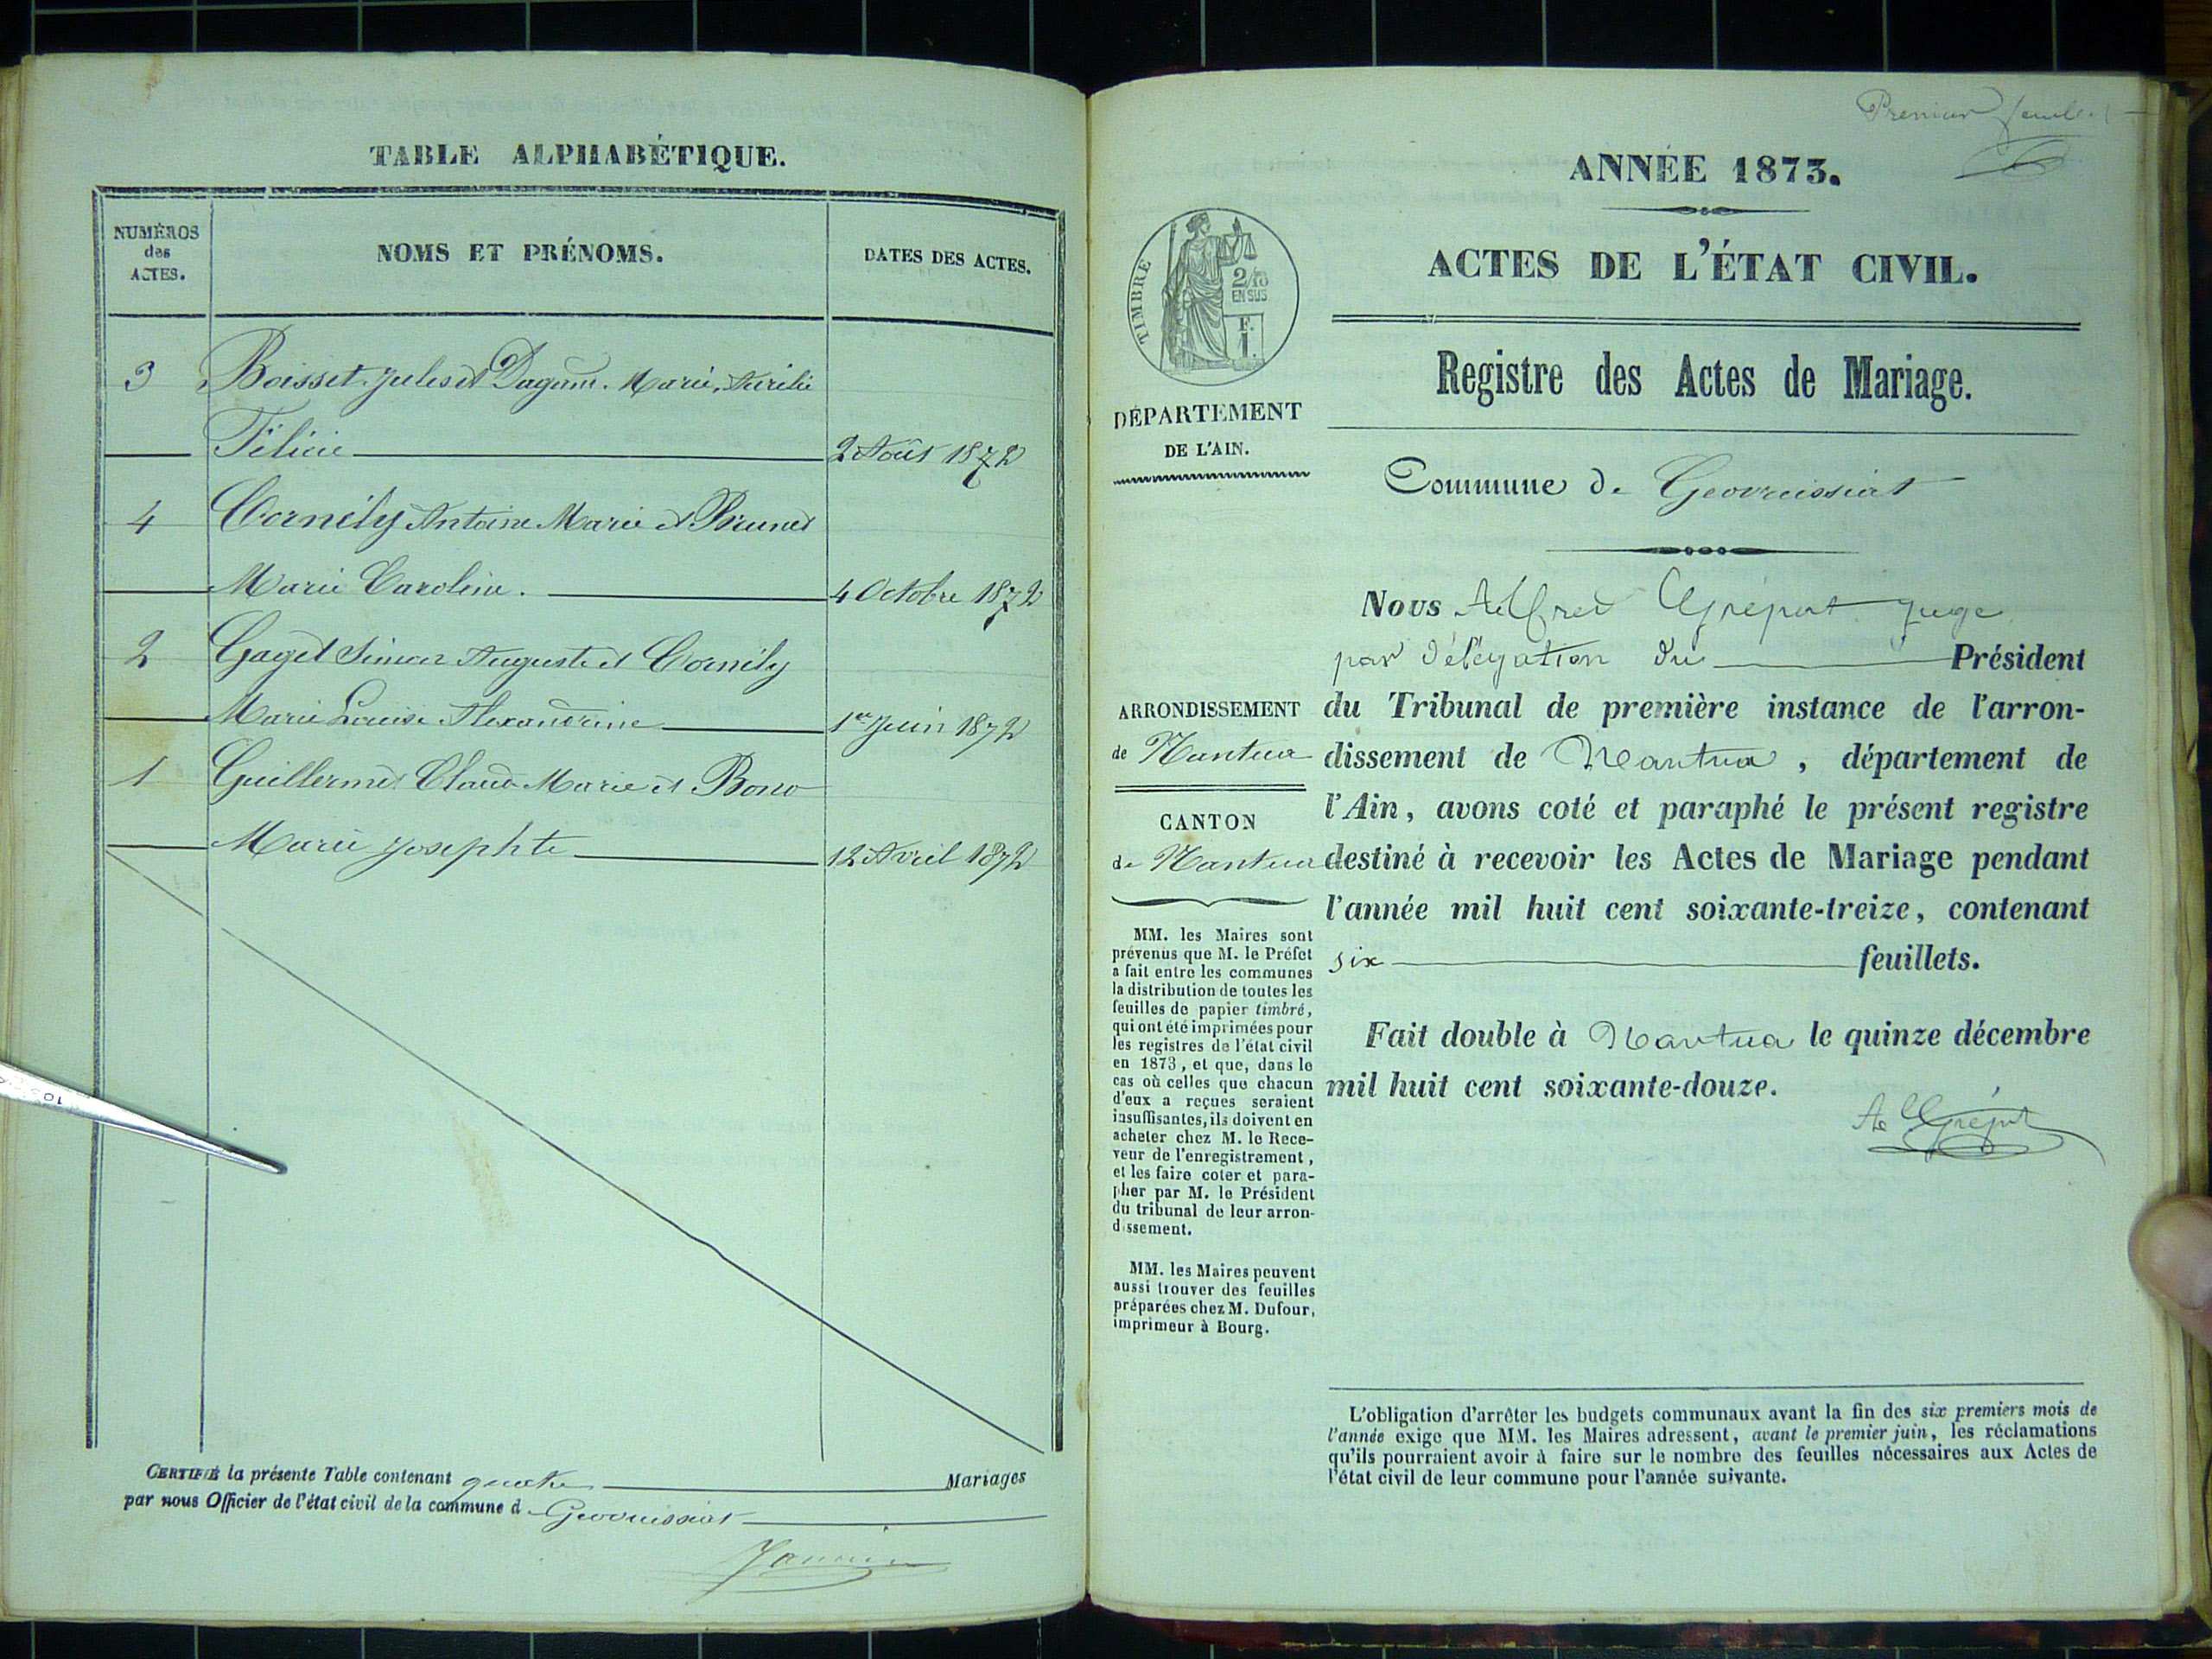 TABLE ALPHABÉTIQUE.
NUMÉROS
des
ACTES.
NOMS ET PRÉNOMS.
DATES DES ACTES.
3 Boisset Jules et Marie, Aurélie
Félicie 2 Août 1872
4 Cornély Antoine Marie et Brunet
Marie Caroline. 4 Octobre 1872
2 Gaget Simon Auguste et Cornély
Marie Louise Alexandrine 1er Juin 1872
1 Guillermet Claude Marie et
Marie Josephte 12 Avril 1872
CERTIFIÉ la présente Table contenant quatre Mariages
par nous Officier de l'état civil de la commune d Geovreissiat
Premier feuillet
ANNÉE 1873.
ACTES DE L'ÉTAT CIVIL.
TIMBRE
2/10
EN SUS
F.
1.
Registre des Actes de Mariage.
DÉPARTEMENT
DE L'AIN.
Commune de Geovreissiat
Nous Alfred juge
par délégation du Président
du Tribunal de première instance de l'arron-
dissement de Nantua, département de
l'Ain, avons coté et paraphé le présent registre
destiné à recevoir les Actes de Mariage pendant
l'année mil huit cent soixante-treize, contenant
six feuillets.
Fait double à Nantua le quinze décembre
mil huit cent soixante-douze.
ARRONDISSEMENT
de Nantua
CANTON
de Nantua
MM. les Maires sont
prévenus que M. le Préfet
a fait entre les communes
la distribution de toutes les
feuilles de papier timbré,
qui ont été imprimées pour
les registres de l'état civil
en 1873, et que, dans le
cas où celles que chacun
d'eux a reçues seraient
insuffisantes, ils doivent en
acheter chez M. le Rece-
veur de l'enregistrement,
et les faire coter et para-
pher par M. le Président
du tribunal de leur arron-
dissement.
MM. les Maires peuvent
aussi trouver des feuilles
préparées chez M. Dufour,
imprimeur à Bourg.
L'obligation d'arrêter les budgets communaux avant la fin des six premiers mois de
l'année exige que MM. les Maires adressent, avant le premier juin, les réclamations
qu'ils pourraient avoir à faire sur le nombre des feuilles nécessaires aux Actes de
l'état civil de leur commune pour l'année suivante.